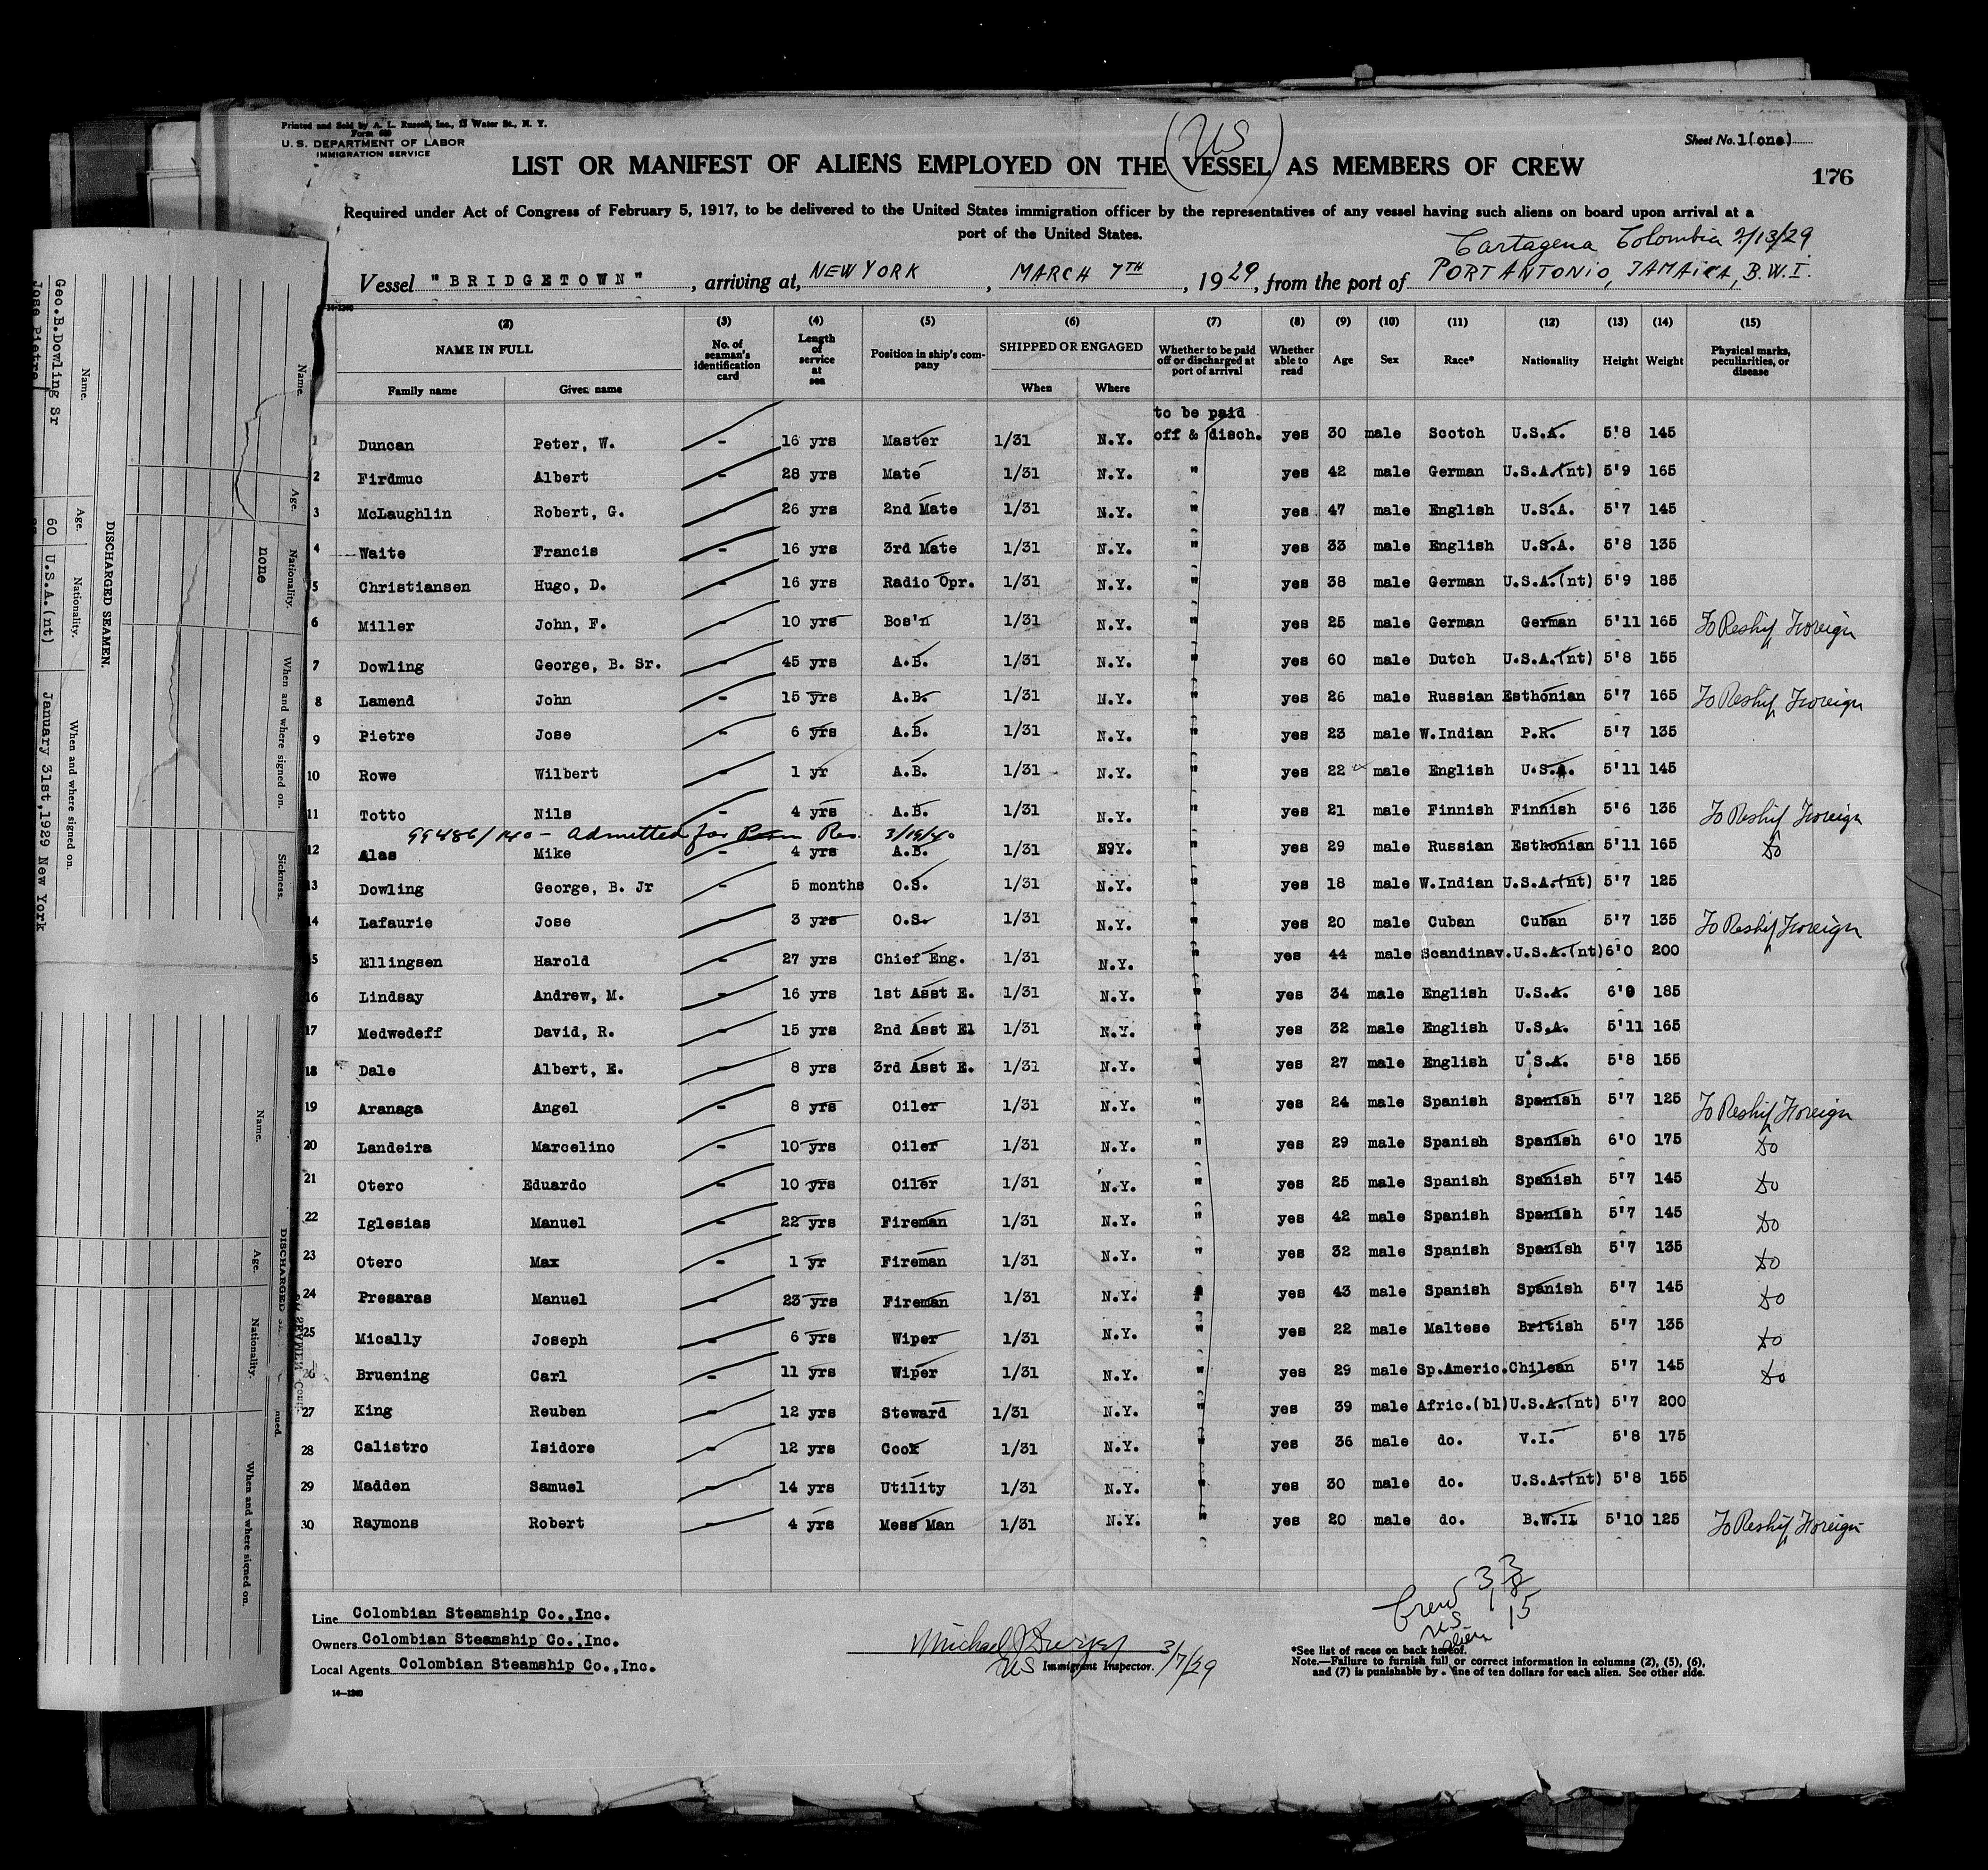 Printed and Sold by A. L. Russell, Inc., 13 Water St., N. Y.
Form 680
U. S. DEPARTMENT OF LABOR
IMMIGRATION SERVICE
Sheet No. 1(one)
(US)
LIST OR MANIFEST OF ALIENS EMPLOYED ON THE VESSEL AS MEMBERS OF CREW
176
Required under Act of Congress of February 5, 1917, to be delivered to the United States immigration officer by the representatives of any vessel having such aliens on board upon arrival at a
port of the United States.
Cartagena Colombia 2/13/29
Vessel "BRIDGETOWN", arriving at, NEW YORK, MARCH 7TH, 1929, from the port of PORT ANTONIO, JAMAICA, B.W.I.
14-1240
(2) (3) (4) (5) (6) (7) (8) (9) (10) (11) (12) (13) (14) (15)
NAME IN FULL No. of seaman's identification card Length of service at sea Position in ship's company SHIPPED OR ENGAGED Whether to be paid off or discharged at port of arrival Whether able to read Age Sex Race* Nationality Height Weight Physical marks, peculiarities, or disease
Family name Given name When Where
to be paid
1 Duncan Peter, W. - 16 yrs Master 1/31 N.Y. off & disch. yes 30 male Scotch U.S.A. 5'8 145
2 Firdmuc Albert - 28 yrs Mate 1/31 N.Y. " yes 42 male German U.S.A.(nt) 5'9 165
3 McLaughlin Robert, G. - 26 yrs 2nd Mate 1/31 N.Y. " yes 47 male English U.S.A. 5'7 145
4 Waite Francis - 16 yrs 3rd Mate 1/31 N.Y. " yes 33 male English U.S.A. 5'8 135
5 Christiansen Hugo, D. - 16 yrs Radio Opr. 1/31 N.Y. " yes 38 male German U.S.A.(nt) 5'9 185
6 Miller John, F. - 10 yrs Bos'n 1/31 N.Y. " yes 25 male German German 5'11 165 To Reship Foreign
7 Dowling George, B. Sr. - 45 yrs A.B. 1/31 N.Y. " yes 60 male Dutch U.S.A.(nt) 5'8 155
8 Lamend John - 15 yrs A.B. 1/31 N.Y. " yes 26 male Russian Esthonian 5'7 165 To Reship Foreign
9 Pietre Jose - 6 yrs A.B. 1/31 N.Y. " yes 23 male W.Indian P.R. 5'7 135
10 Rowe Wilbert - 1 yr A.B. 1/31 N.Y. " yes 22 male English U.S.A. 5'11 145
11 Totto Nils - 4 yrs A.B. 1/31 N.Y. " yes 21 male Finnish Finnish 5'6 135 To Reship Foreign
99486/140 - Admitted for Perm Res. 3/19/40
12 Alas Mike - 4 yrs A.B. 1/31 N.Y. " yes 29 male Russian Esthonian 5'11 165 do
13 Dowling George, B. Jr - 5 months O.S. 1/31 N.Y. " yes 18 male W.Indian U.S.A.(nt) 5'7 125
14 Lafaurie Jose - 3 yrs O.S. 1/31 N.Y. " yes 20 male Cuban Cuban 5'7 135 To Reship Foreign
5 Ellingsen Harold - 27 yrs Chief Eng. 1/31 N.Y. " yes 44 male Scandinav. U.S.A.(nt) 6'0 200
16 Lindsay Andrew, M. - 16 yrs 1st Asst E. 1/31 N.Y. " yes 34 male English U.S.A. 6'0 185
17 Medwedeff David, R. - 15 yrs 2nd Asst El 1/31 N.Y. " yes 32 male English U.S.A. 5'11 165
18 Dale Albert, E. - 8 yrs 3rd Asst E. 1/31 N.Y. " yes 27 male English U.S.A. 5'8 155
19 Aranaga Angel - 8 yrs Oiler 1/31 N.Y. " yes 24 male Spanish Spanish 5'7 125 To Reship Foreign
20 Landeira Marcelino - 10 yrs Oiler 1/31 N.Y. " yes 29 male Spanish Spanish 6'0 175 do
21 Otero Eduardo - 10 yrs Oiler 1/31 N.Y. " yes 25 male Spanish Spanish 5'7 145 do
22 Iglesias Manuel - 22 yrs Fireman 1/31 N.Y. " yes 42 male Spanish Spanish 5'7 145 do
23 Otero Max - 1 yr Fireman 1/31 N.Y. " yes 32 male Spanish Spanish 5'7 135 do
24 Presaras Manuel - 23 yrs Fireman 1/31 N.Y. " yes 43 male Spanish Spanish 5'7 145 do
25 Mically Joseph - 6 yrs Wiper 1/31 N.Y. " yes 22 male Maltese British 5'7 135 do
26 Bruening Carl - 11 yrs Wiper 1/31 N.Y. " yes 29 male Sp.Americ. Chilean 5'7 145 do
27 King Reuben - 12 yrs Steward 1/31 N.Y. " yes 39 male Afric.(bl) U.S.A.(nt) 5'7 200
28 Calistro Isidore - 12 yrs Cook 1/31 N.Y. " yes 36 male do. V.I. 5'8 175
29 Madden Samuel - 14 yrs Utility 1/31 N.Y. " yes 30 male do. U.S.A.(nt) 5'8 155
30 Raymons Robert - 4 yrs Mess Man 1/31 N.Y. " yes 20 male do. B.W.II 5'10 125 To Reship Foreign
Crew 33
US 18
alien 15
Line Colombian Steamship Co.,Inc.
Owners Colombian Steamship Co.,Inc.
Local Agents Colombian Steamship Co.,Inc.
14-1240
Michael J
US Immigrant Inspector. 3/7/29
*See list of races on back hereof.
Note.—Failure to furnish full or correct information in columns (2), (5), (6),
and (7) is punishable by fine of ten dollars for each alien. See other side.
DISCHARGED SEAMEN.
Name. Age. Nationality. When and where signed on.
Geo.B.Dowling Sr 60 U.S.A.(nt) January 31st,1929 New York
Jose Pietre
Name. Age. Nationality. When and where signed on. Sickness.
none
Name. Age. Nationality. When and where signed on.